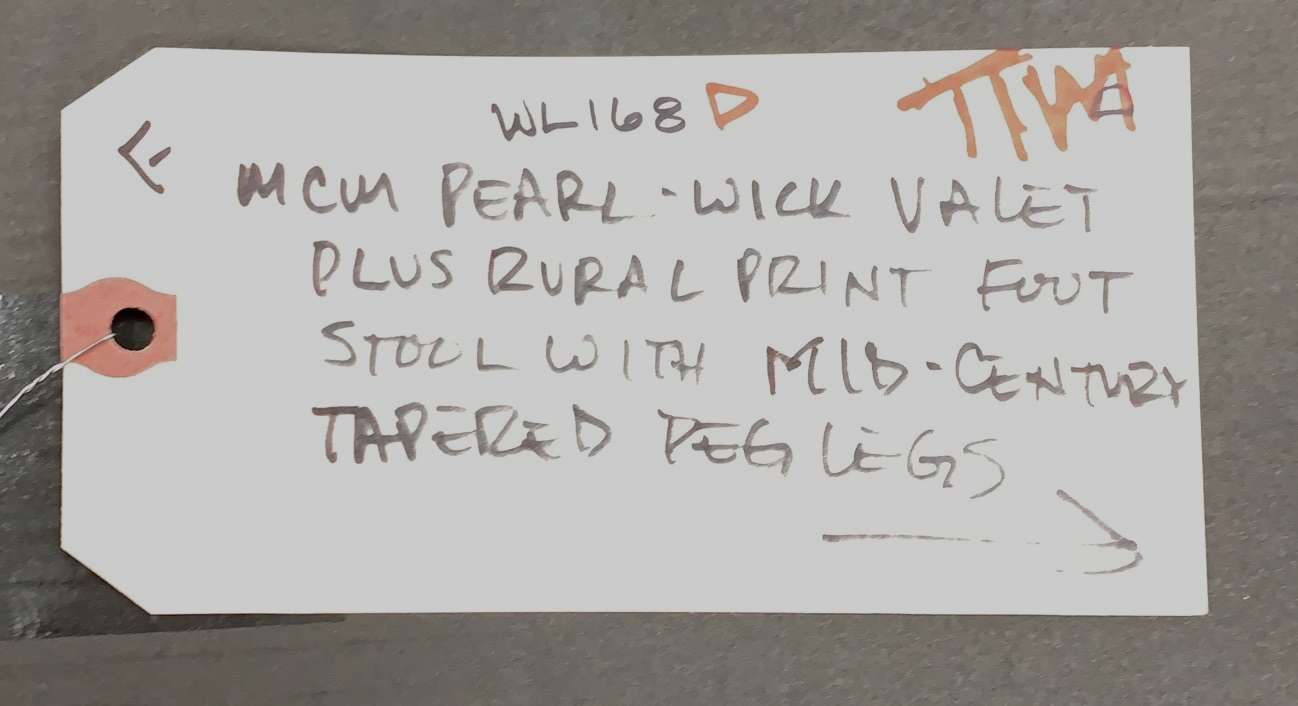 WL168 D
MCM PEARL-WICK VALET
PLUS RURAL PRINT FOOT
STOOL WITH MID-CENTURY
TAPERED PEG LEGS